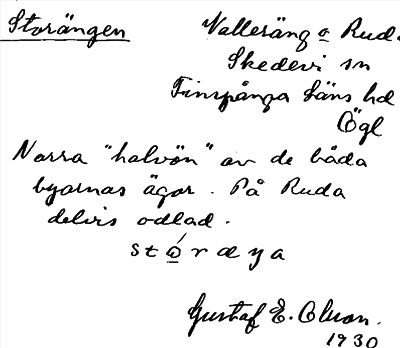 Storängen
Valleräng o Ruda
Skedevi sn
Finspånga Läns hd
Ögl
Norra "halvön" av de båda
byarnas ägor. På Ruda
delvis odlad.
stó̲rdya
Gustaf E. Olson.
1930